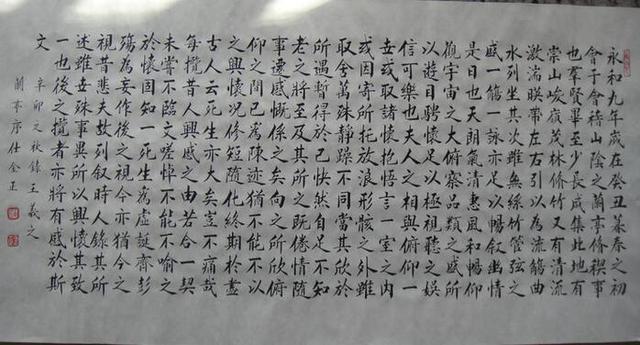 永和九年歲在癸丑暮春之初
會于會稽山陰之蘭亭脩禊事
也羣賢畢至少長咸集此地有
崇山峻嶺茂林脩竹又有清流
激湍暎帶左右引以為流觴曲
水列坐其次雖無絲竹管弦之
盛一觴一詠亦足以暢叙幽情
是日也天朗氣清惠風和暢仰
觀宇宙之大俯察品類之盛所
以遊目騁懷足以極視聽之娛
信可樂也夫人之相與俯仰一
世或取諸懷抱悟言一室之內
或因寄所托放浪形骸之外雖
取舍萬殊靜躁不同當其欣於
所遇暫得於己快然自足不知
老之將至及其所之既倦情隨
事遷感慨係之矣向之所欣俯
仰之間已為陳迹猶不能不以
之興懷況脩短隨化終期於盡
古人云死生亦大矣豈不痛哉
每攬昔人興感之由若合一契
未嘗不臨文嗟悼不能不喻之
於懷固知一死生為虛誕齊彭
殤為妄作後之視今亦猶今之
視昔悲夫故列叙時人錄其所
述雖世殊事異所以興懷其致
一也後之攬者亦將有感於斯
文
辛卯之秋錄王羲之
蘭亭序仕全正